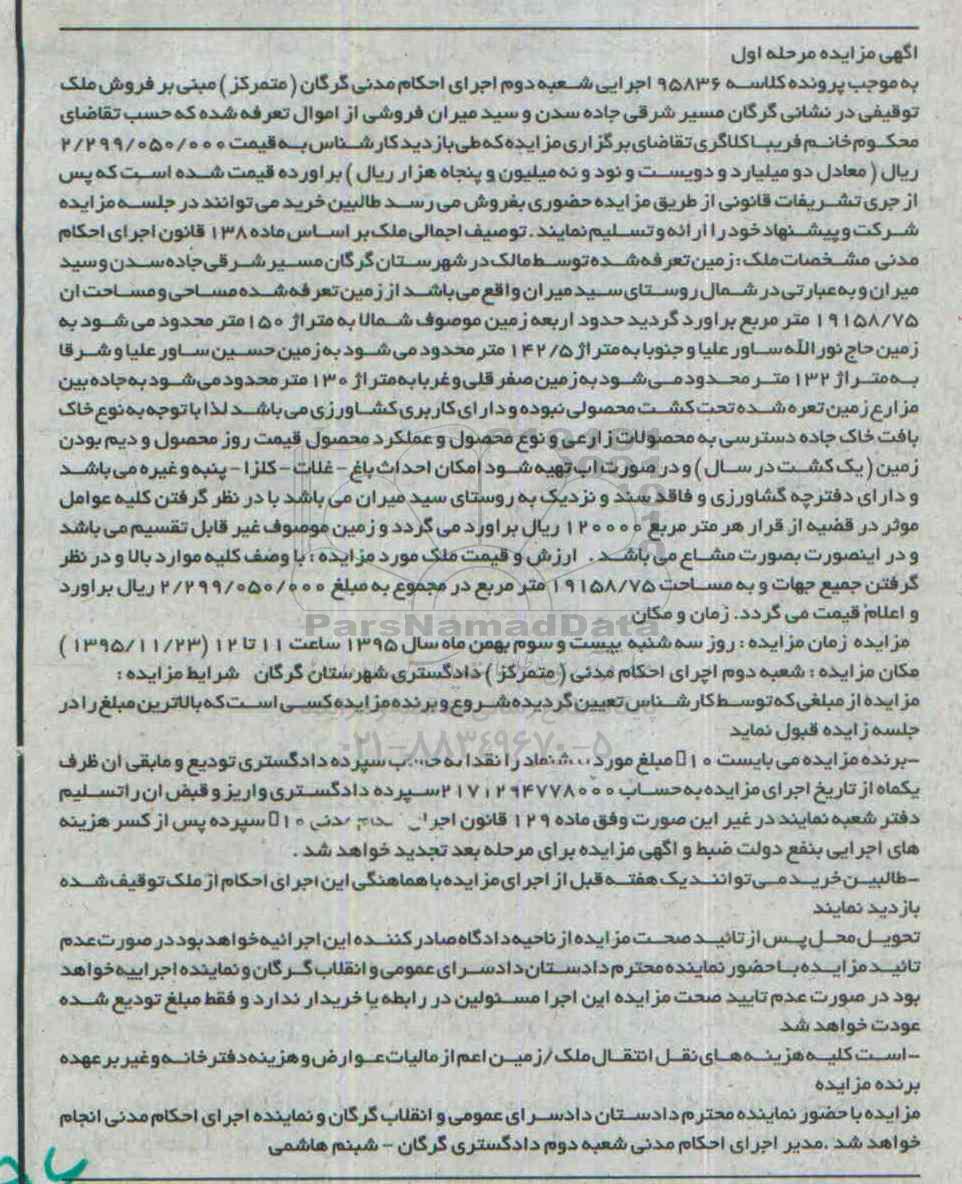 اگهی مزایده مرحله اول
به موجب پرونده کلاسه ۹۵۸۳۶ اجرایی شعبه دوم اجرای احکام مدنی گرگان ( متمرکز ) مبنی بر فروش ملک
توقیفی در نشانی گرگان مسیر شرقی جاده سدن و سید میران فروشی از اموال تعرفه شده که حسب تقاضای
محکوم خانم فریبا کلاگری تقاضای برگزاری مزایده که طی بازدید کارشناس به قیمت ۲/۲۹۹/۰۵۰/۰۰۰
ریال ( معادل دو میلیارد و دویست و نود و نه میلیون و پنجاه هزار ریال ) براورده قیمت شده است که پس
از جری تشریفات قانونی از طریق مزایده حضوری بفروش می رسد طالبین خرید می توانند در جلسه مزایده
شرکت و پیشنهاد خود را ارائه و تسلیم نمایند . توصیف اجمالی ملک بر اساس ماده ۱۳۸ قانون اجرای احکام
مدنی مشخصات ملک : زمین تعرفه شده توسط مالک در شهرستان گرگان مسیر شرقی جاده سدن و سید
میران و به عبارتی در شمال روستای سید میران واقع می باشد از زمین تعرفه شده مساحی و مساحت ان
۱۹۱۵۸/۷۵ متر مربع براورد گردید حدود اربعه زمین موصوف شمالا به متراژ ۱۵۰ متر محدود می شود به
زمین حاج نورالله ساور علیا و جنوبا به متراژ ۱۴۲/۵ متر محدود می شود به زمین حسین ساور علیا و شرقا
به متراژ ۱۳۲ متر محدود می شود به زمین صفر قلی و غربا به متراژ ۱۳۰ متر محدود می شود به جاده بین
مزارع زمین تعره شده تحت کشت محصولی نبوده و دارای کاربری کشاورزی می باشد لذا با توجه به نوع خاک
بافت خاک جاده دسترسی به محصولات زارعی و نوع محصول و عملکرد محصول قیمت روز محصول و دیم بودن
زمین ( یک کشت در سال ) و در صورت اب تهیه شود امکان احداث باغ - غلات - کلزا - پنبه و غیره می باشد
و دارای دفترچه گشاورزی و فاقد سند و نزدیک به روستای سید میران می باشد با در نظر گرفتن کلیه عوامل
موثر در قضیه از قرار هر متر مربع ۱۲۰۰۰۰ ریال براورد می گردد و زمین موصوف غیر قابل تقسیم می باشد
و در اینصورت بصورت مشاع می باشد . ارزش و قیمت ملک مورد مزایده : با وصف کلیه موارد بالا و در نظر
گرفتن جمیع جهات و به مساحت ۱۹۱۵۸/۷۵ متر مربع در مجموع به مبلغ ۲/۲۹۹/۰۵۰/۰۰۰ ریال براورد
و اعلام قیمت می گردد. زمان و مکان
ParsNamadData
مزایده زمان مزایده : روز سه شنبه بیست و سوم بهمن ماه سال ۱۳۹۵ ساعت ۱۱ تا ۱۲ (۱۳۹۵/۱۱/۲۳ )
مکان مزایده : شعبه دوم اجرای احکام مدنی ( متمرکز ) دادگستری شهرستان گرگان شرایط مزایده :
مزایده از مبلغی که توسط کارشناس تعیین گردیده شروع و برنده مزایده کسی است که بالاترین مبلغ را در
جلسه زایده قبول نماید
۰۲۱-۸۸۳۴۹۶۷۰-۵
-برنده مزایده می بایست ۱۰ مبلغ مورد پیشنهاد را نقدا به حساب سپرده دادگستری تودیع و مابقی ان ظرف
یکماه از تاریخ اجرای مزایده به حساب ۲۱۷۱۲۹۴۷۷۸۰۰۰ سپرده دادگستری واریز و قبض ان را تسلیم
دفتر شعبه نمایند در غیر این صورت وفق ماده ۱۲۹ قانون اجرای احکام مدنی ۱۰ سپرده پس از کسر هزینه
های اجرایی بنفع دولت ضبط و اگهی مزایده برای مرحله بعد تجدید خواهد شد .
-طالبین خرید می توانند یک هفته قبل از اجرای مزایده با هماهنگی این اجرای احکام از ملک توقیف شده
بازدید نمایند
تحویل محل پس از تائید صحت مزایده از ناحیه دادگاه صادر کننده این اجرائیه خواهد بود در صورت عدم
تائید مزایده با حضور نماینده محترم دادستان دادسرای عمومی و انقلاب گرگان و نماینده اجراییه خواهد
بود در صورت عدم تایید صحت مزایده این اجرا مسئولین در رابطه یا خریدار ندارد و فقط مبلغ تودیع شده
عودت خواهد شد
-است کلیه هزینه های نقل انتقال ملک/زمین اعم از مالیات عوارض و هزینه دفترخانه و غیر بر عهده
برنده مزایده
مزایده با حضور نماینده محترم دادستان دادسرای عمومی و انقلاب گرگان و نماینده اجرای احکام مدنی انجام
خواهد شد .مدیر اجرای احکام مدنی شعبه دوم دادگستری گرگان - شبنم هاشمی